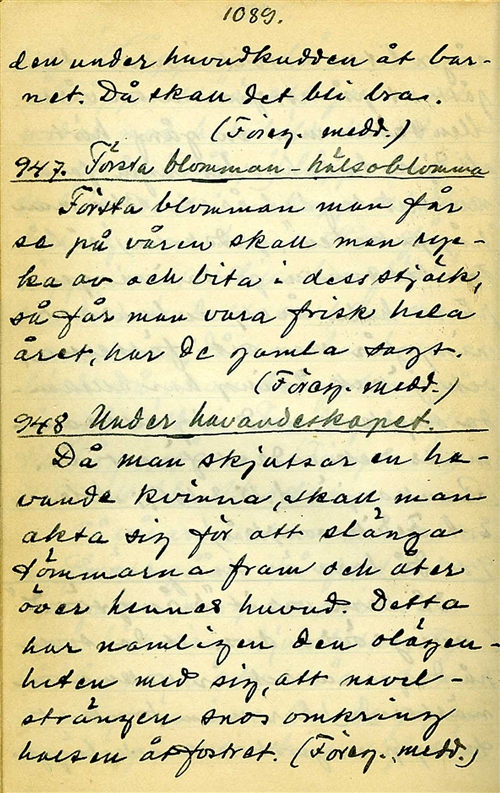 1089.
den under huvudkudden åt bar-
net. Då skall det bli bra.
(Föreg. medd.)
947. Första blomman - hälsoblomma
Första blomman man får
se på våren skall man ryc-
ka av och bita i dess stjälk,
så får man vara frisk hela
året, har de gamla sagt.
(Föreg. medd.)
948 Under havandeskapet.
Då man skjutsar en ha-
vande kvinna, skall man
akta sig för att slänga
tömmarna fram och åter
över hennes huvud. Detta
har namligen den olägen-
heten med sig, att navel-
strängen snos omkring
halsen åt fostret. (Föreg. medd.)